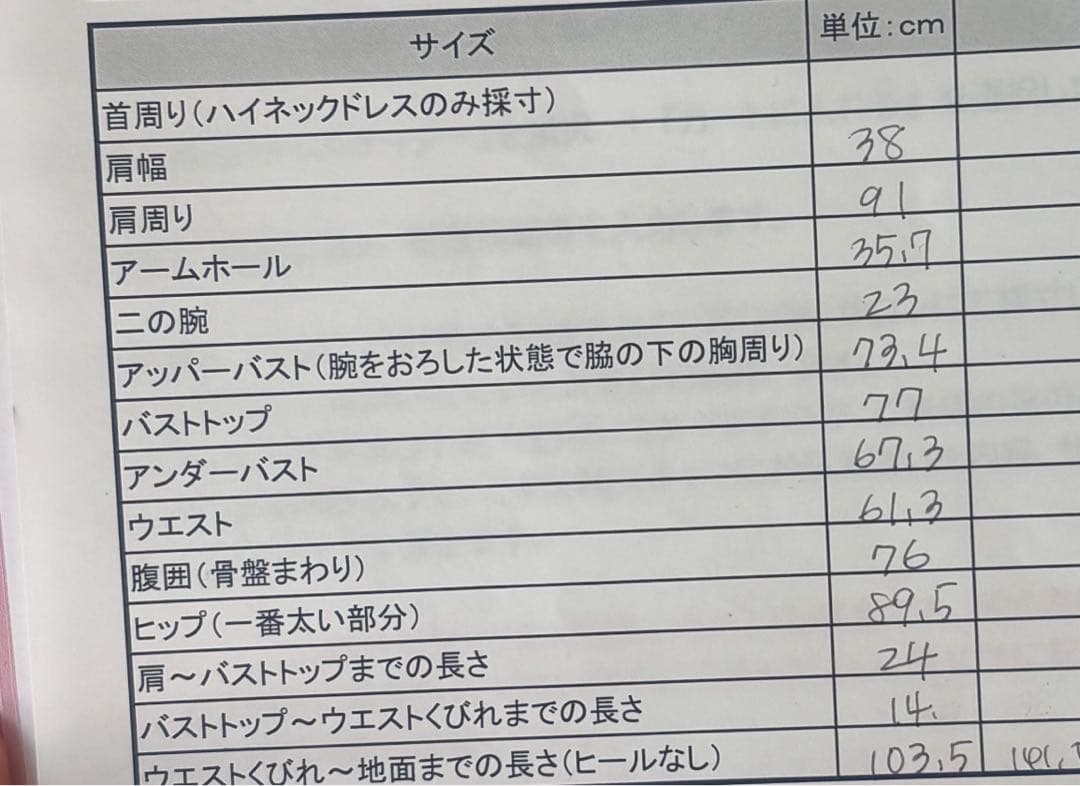 サイズ 単位:cm
首周り(ハイネックドレスのみ採寸)
肩幅 38
肩周り 91
アームホール 35.7
二の腕 23
アッパーバスト(腕をおろした状態で脇の下の胸周り) 73.4
バストトップ 77
アンダーバスト 67.3
ウエスト 61.3
腹囲(骨盤まわり) 76
ヒップ(一番太い部分) 89.5
肩～バストトップまでの長さ 24
バストトップ～ウエストくびれまでの長さ 14.
ウエストくびれ～地面までの長さ(ヒールなし) 103.5